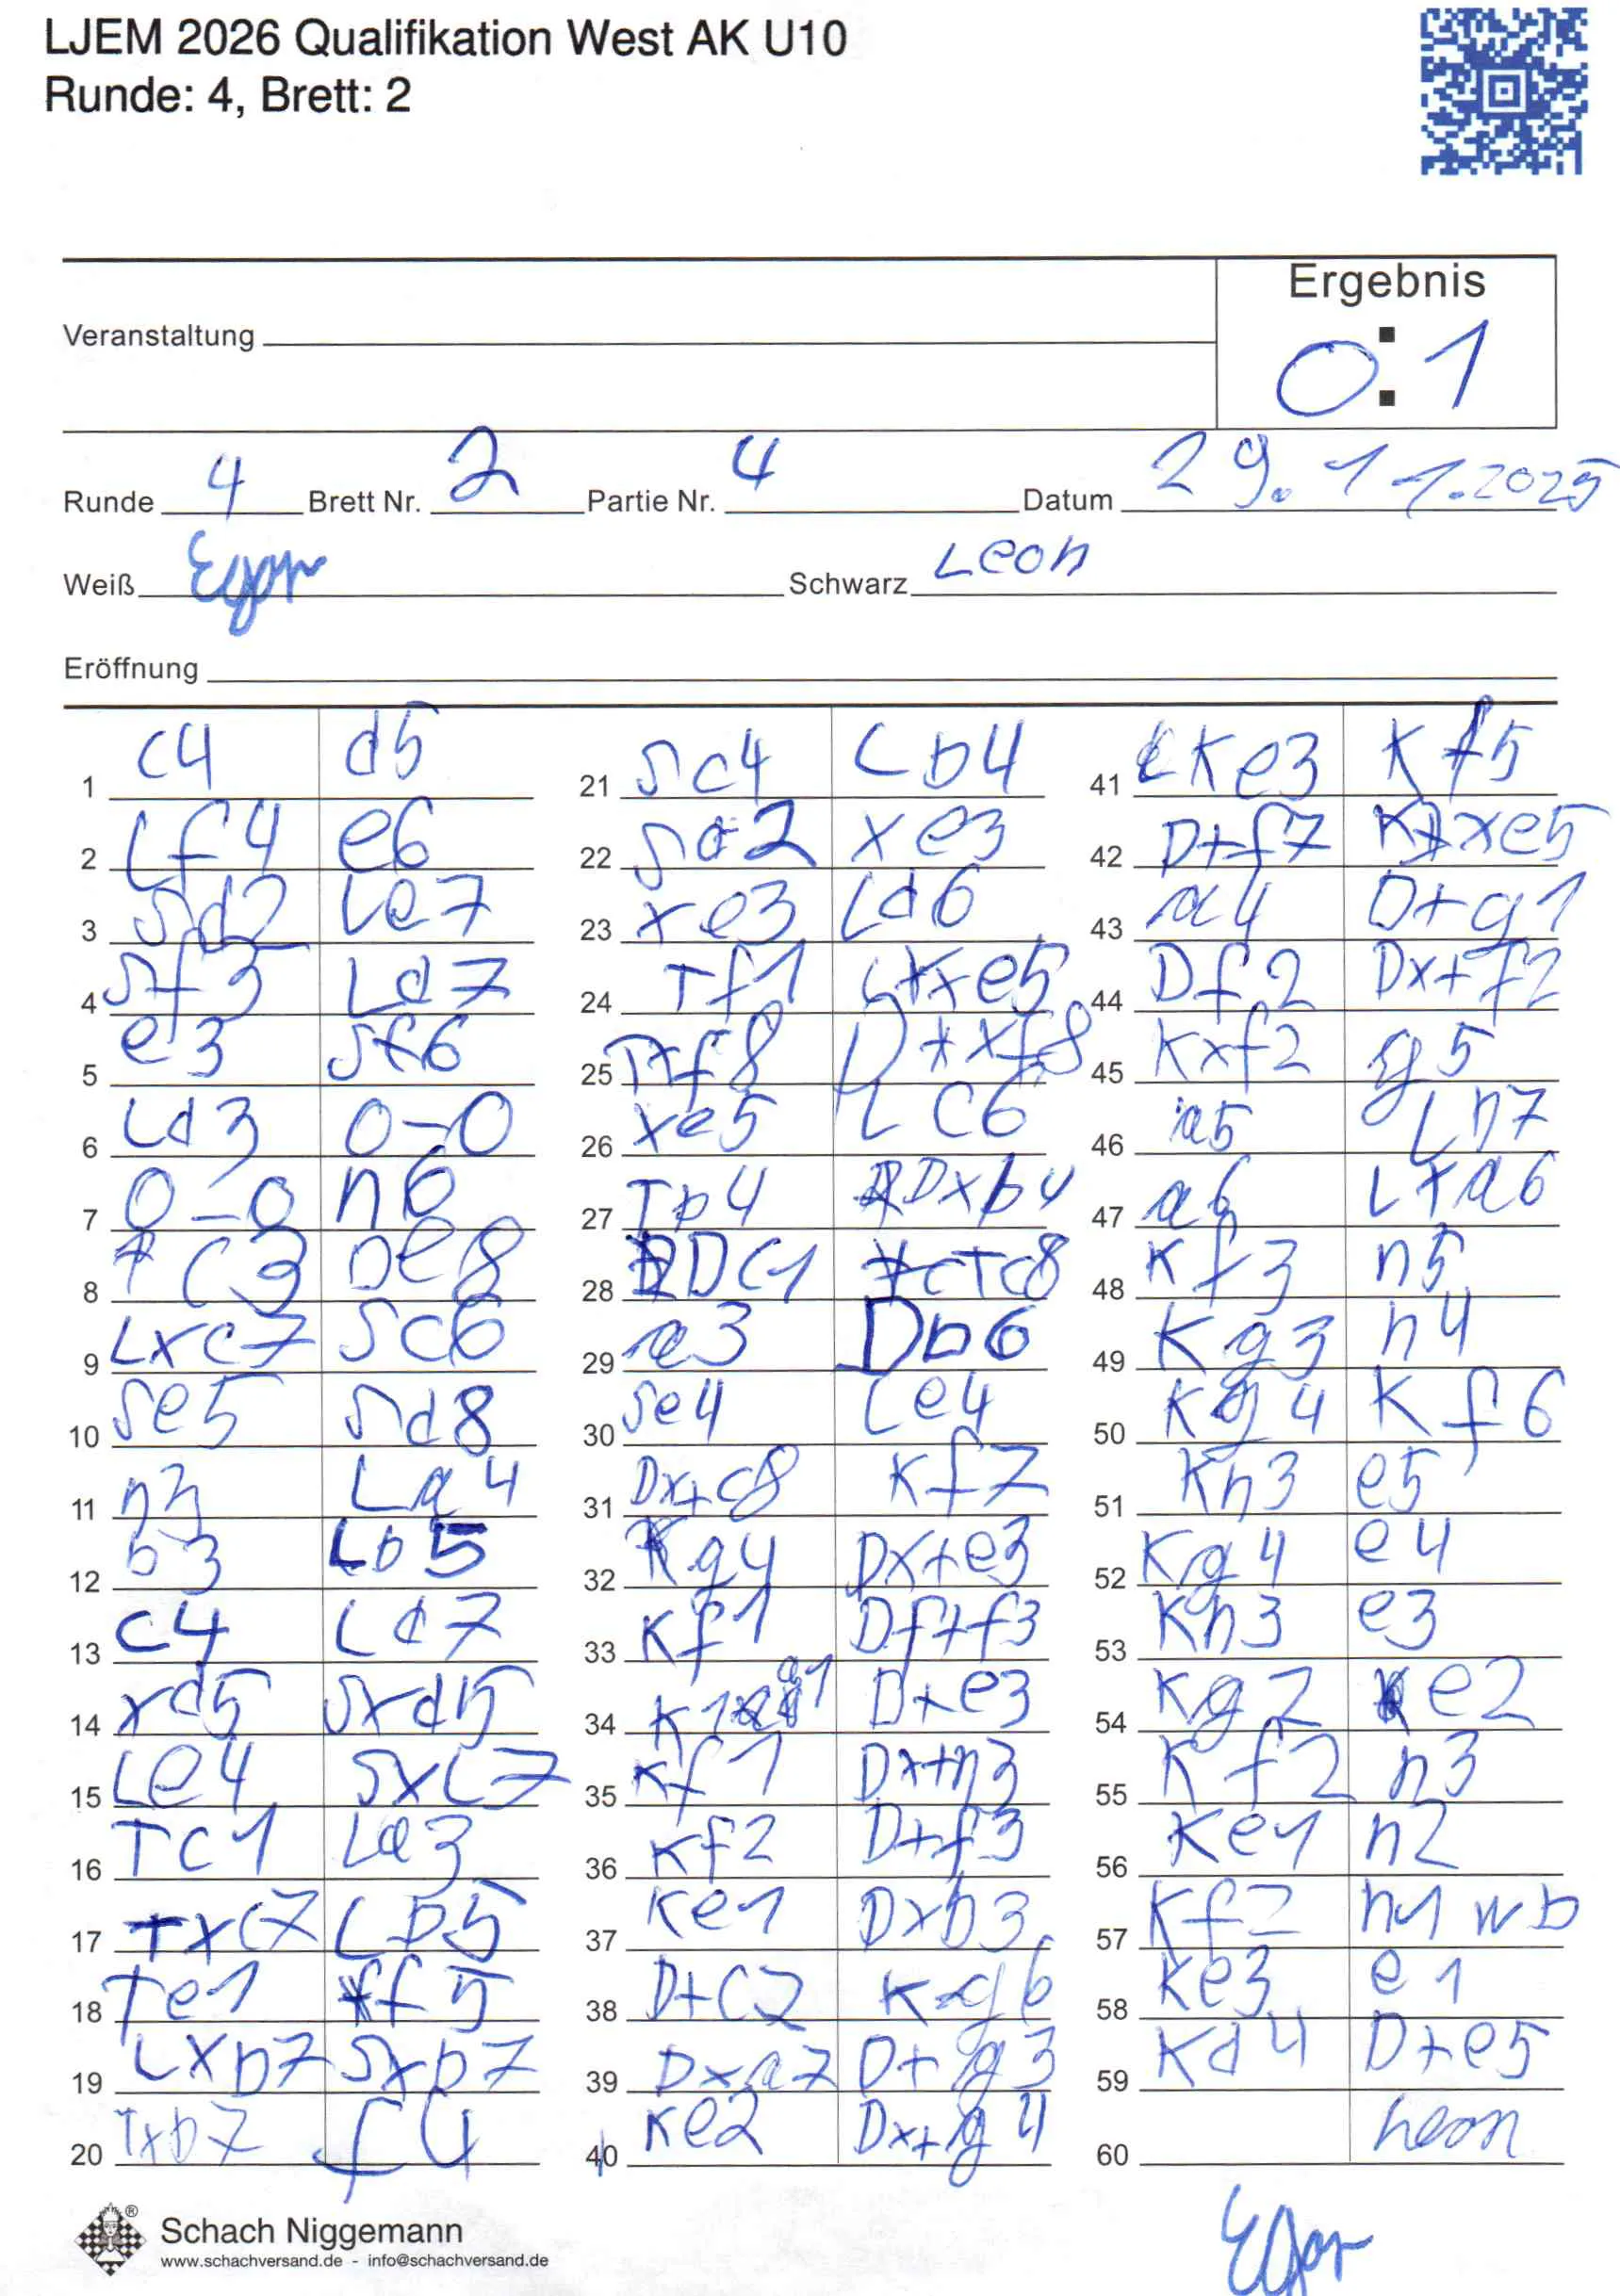 LJEM 2026 Qualifikation West AK U10
Runde: 4, Brett: 2
Ergebnis
Veranstaltung
0:1
Runde 4 Brett Nr. 2 Partie Nr. 4 Datum 29.11.2025
Weiß Egor Schwarz Leon
Eröffnung
1 c4 d5 21 Sc4 Lb4 41 Ke3 Kf5
2 Lf4 e6 22 Sd2 xe3 42 D+f7 Kxe5
3 Sd2 Le7 23 xe3 Ld6 43 a4 D+g1
4 Sf3 Ld7 24 Tf1 Lxe5 44 Df2 Dx+f2
5 e3 Sf6 25 Tf8 D+xf8 45 Kxf2 g5
6 Ld3 0-0 26 xe5 Lc6 46 a5 Lh7
7 0-0 h6 27 Tb4 Dxb4 47 a6 Lxa6
8 c3 De8 28 Dc1 Tc8 48 Kf3 h5
9 Lxc7 Sc6 29 a3 Db6 49 Kg3 h4
10 Se5 Sd8 30 Se4 Le4 50 Kg4 Kf6
11 h3 La4 31 Dx+c8 Kf7 51 Kh3 e5
12 b3 Lb5 32 g4 Dx+e3 52 Kg4 e4
13 c4 Ld7 33 Kf1 Df+f3 53 Kh3 e3
14 xd5 Sxd5 34 Kg1 D+e3 54 Kg2 e2
15 Le4 Sxc7 35 Kf1 Dx+h3 55 Kf2 h3
16 Tc1 La3 36 Kf2 D+f3 56 Ke1 h2
17 Txc7 Lb5 37 Ke1 Dxb3 57 Kf2 h1 wb
18 Te1 f5 38 D+c2 Kg6 58 Ke3 e1
19 Lxb7 Sxb7 39 Dxa7 D+g3 59 Kd4 D+e5
20 Txb7 f4 40 Ke2 Dx+g4 60 Leon
Egor
®
Schach Niggemann
www.schachversand.de - info@schachversand.de